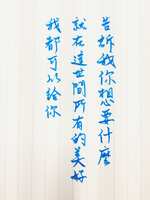 告訴我你想要什麼
就在這世間所有的美好
我都可以給你